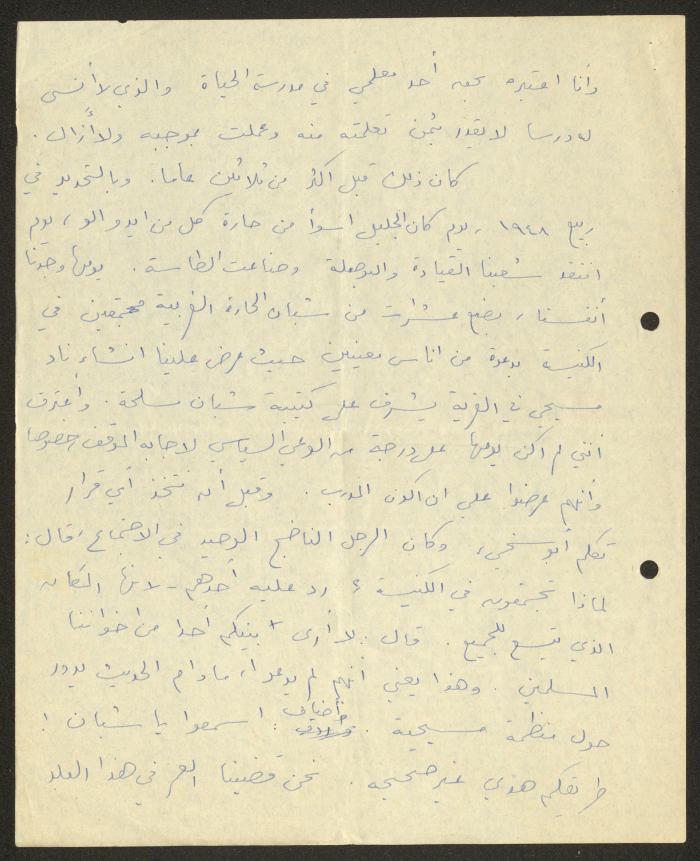 وأنا اعتبره بحق أحد معلمي في مدرسة الحياة والذي لا أنسى
له درسا لا يقدر بثمن تعلمته منه وعملت بموجبه ولا أزال.
كان ذلك قبل اكثر من ثلاثين عاما. وبالتحديد في
ربيع ١٩٤٨، يوم كان الجليل اسوأ من حارة كل من ايدو الو، يوم
افتقد شعبنا القيادة والبوصلة وضاعت الطاسة. يومها وجدنا
أنفسنا، بضع عشرات من شبان الحارة الغربية مجتمعين في
الكنيسة بدعوة من اناس معينين حيث عرض علينا انشاء ناد
مسيحي في القرية يشرف على كتيبة شبان مسلحة. وأعترف
أنني لم اكن يومها على درجة من الوعي السياسي لاجابه الموقف، خصوصا
وأنهم عرضوا علي ان اكون المدرب. وقبل أن نتخذ أي قرار
تكلم أبو سخي، وكان الرجل الناضج الوحيد في الاجتماع، قال:
لماذا تجتمعون في الكنيسة؟ رد عليه أحدهم - لانها المكان
الذي يتسع للجميع. قال: لا أرى بينكم أحدا من اخواننا
المسلمين. وهذا يعني انهم لم يدعوا، ما دام الحديث يدور
حول منظمة مسيحية. وأضاف: اسمعوا يا شبان!
طريقكم هذي غير صحيحه. نحن قضينا العمر في هذا البلد